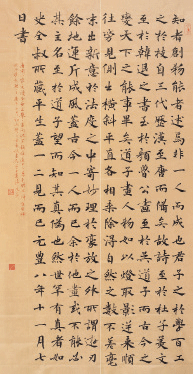 知者創物能者述焉非一人而成也君子之於學百工
之於技自三代歷漢至唐而備矣故詩至於杜子美文
至於韓退之書至於顏魯公畫至於吳道子而古今之
變天下之能事畢矣道子畫人物如以燈取影逆來順
往旁見側出橫斜平直各相乘除得自然之數不差毫
末出新意於法度之中寄妙理於豪放之外所謂遊刃
餘地運斤成風蓋古今一人而已余於他畫或不能必
其主名至於道子望而知其真偽也然世罕有真者如
史全叔所藏平生蓋一二見而已元豐八年十一月七
日書